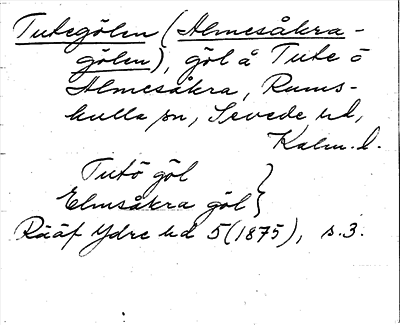 Tutegölen (Almesåkra-
gölen), göl å Tute ö
Almesåkra, Rums-
kulla sn, Sevede hd,
Kalm. l.
Tutö göl }
Elmsåkra göl }
Rääf Ydre hd 5 (1875), s. 3.